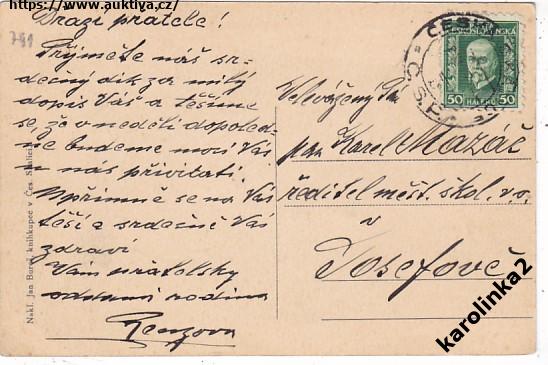 https://www.auktiva.cz/
791
Drazí přátelé!
Přijměte náš sr-
dečný dík za milý
dopis Váš a těšíme
se, že v neděli dopoled-
ne budeme moci Vás
u nás přivítati.
Upřímně se na Vás
těší a srdečně Vás
zdraví
Vám přátelsky
oddaná rodina
Nakl. Jan Bureš, knihkupec v Čes. Skalici
ČESKÁ
Č.S.P.
ČESKOSLOVENSKÁ
50 HALÉŘŮ 50
Velevážený Pán
pan Karel Mazáč
ředitel měšť. škol. v. v.
v
Josefově
karolinka2